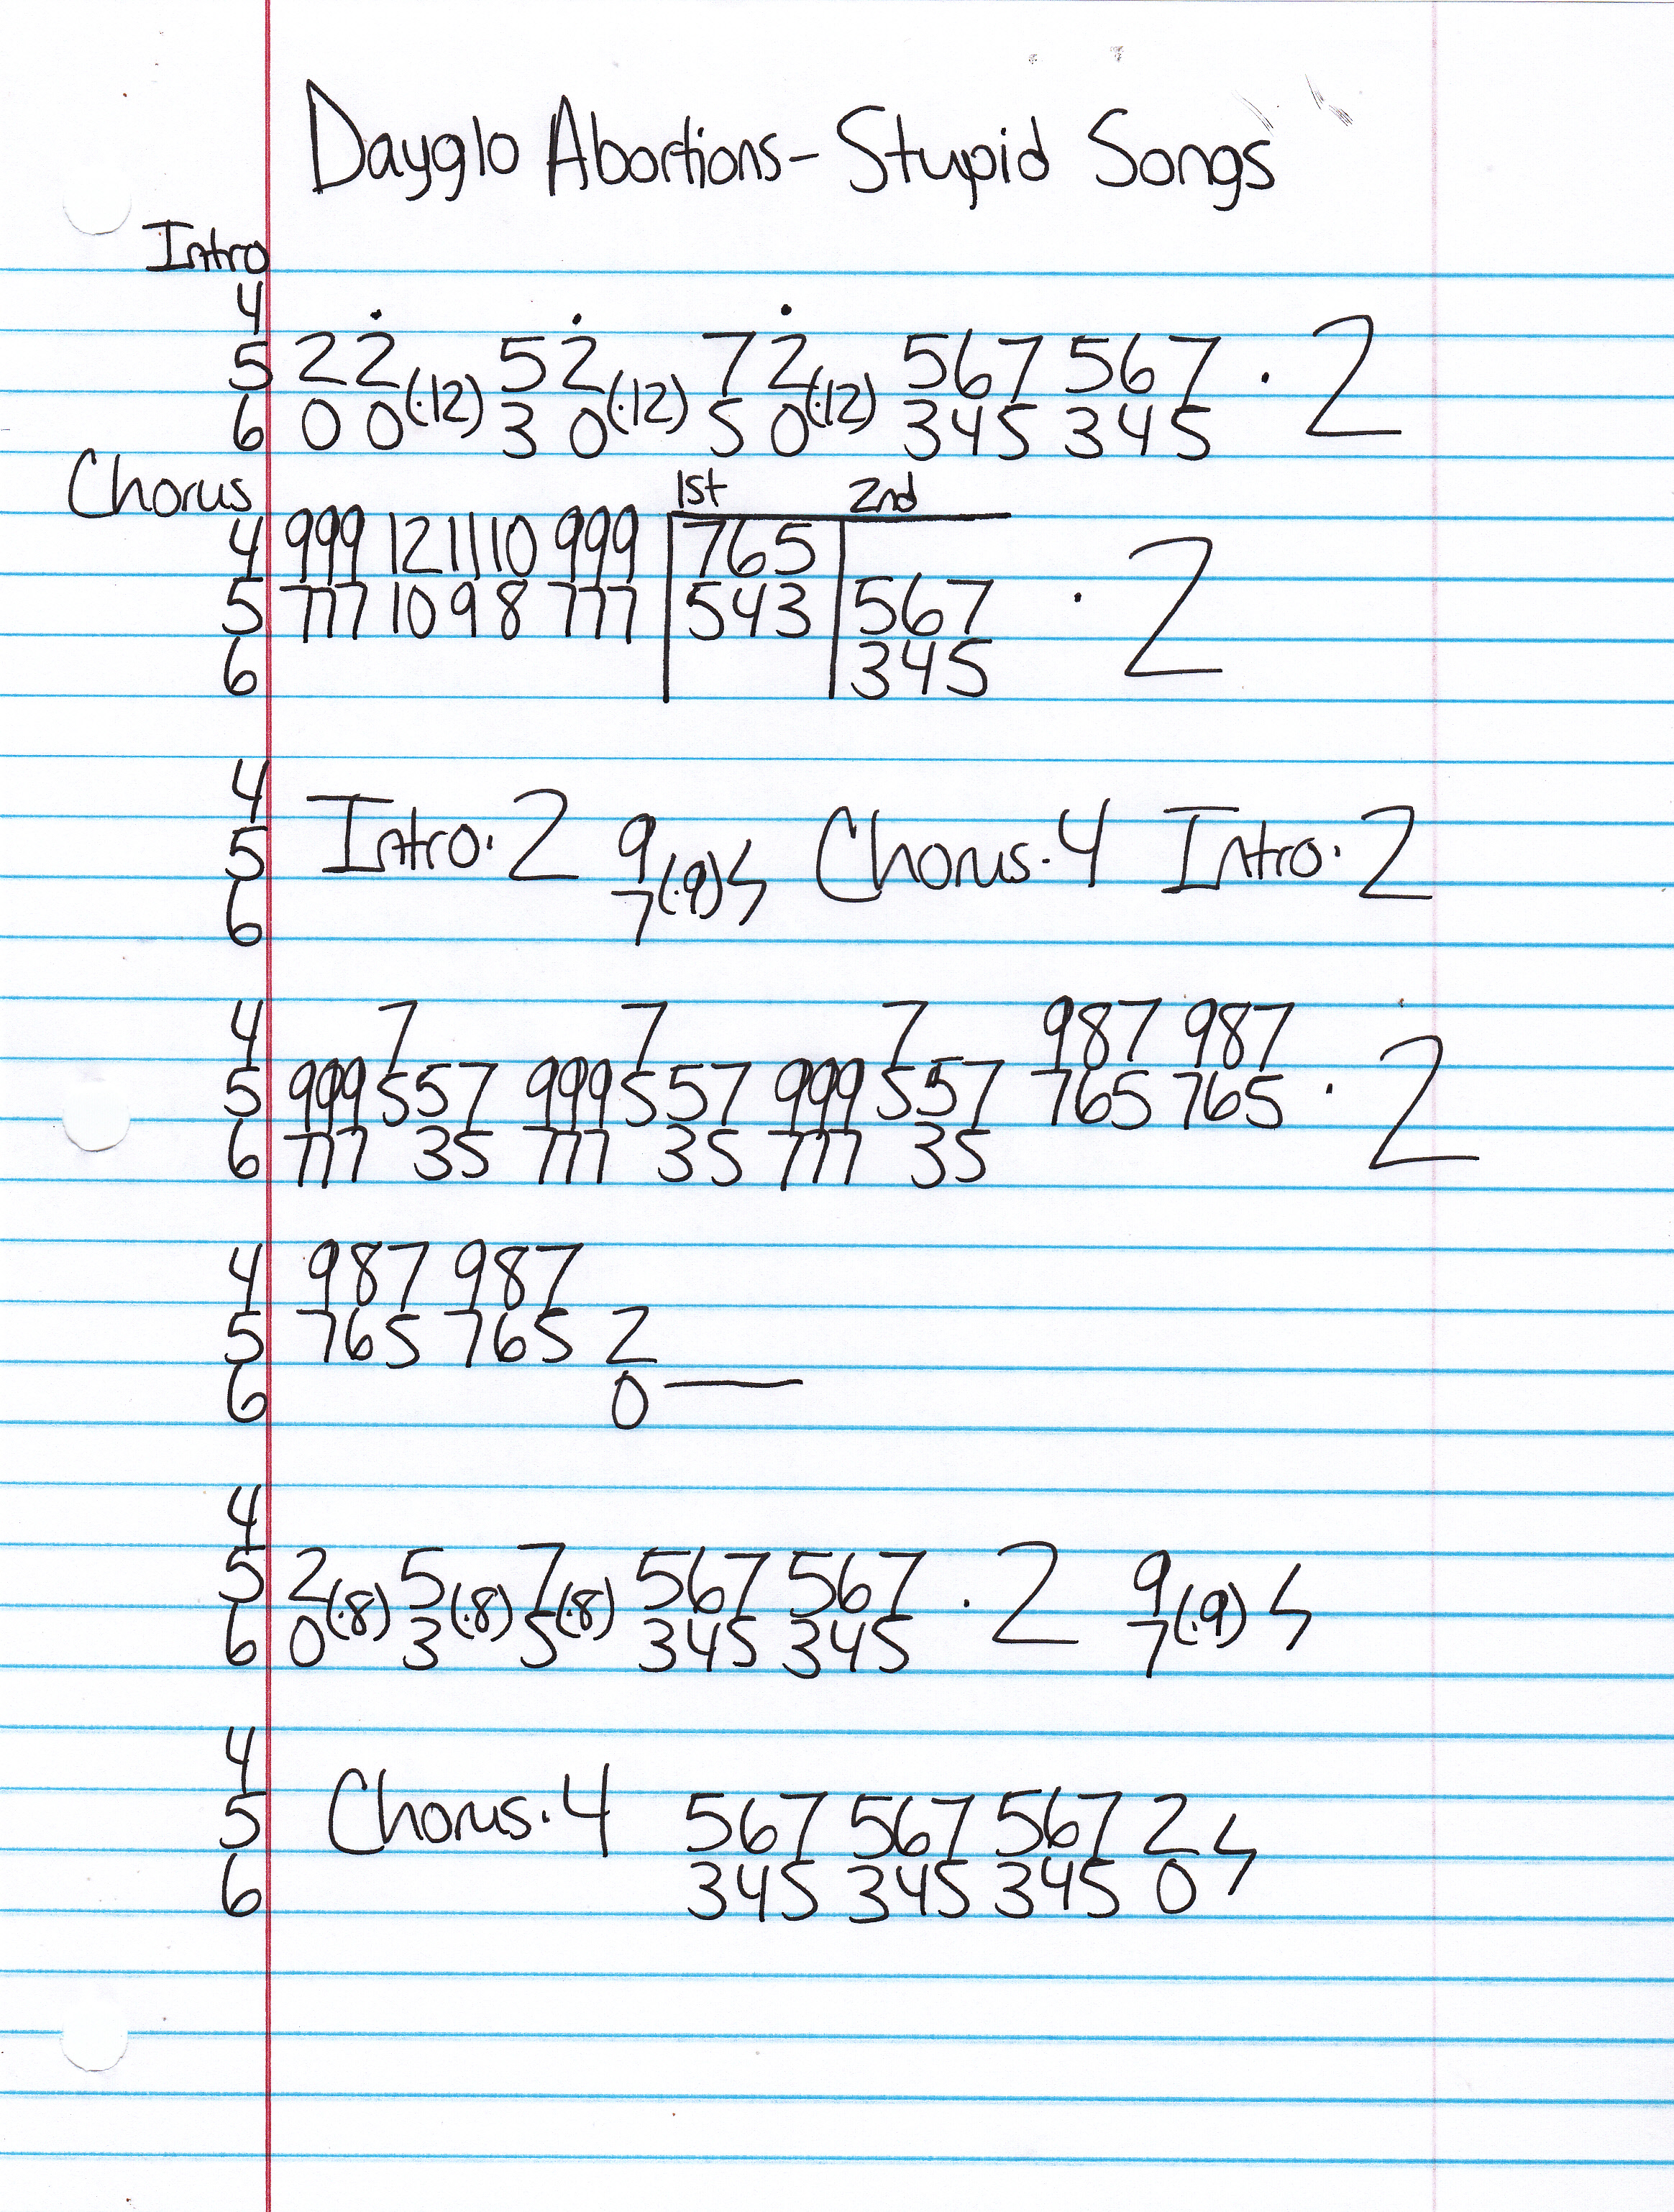 Dayglo Abortions - Stupid Songs
Intro
4
5 2 2 (·12) 5 2 (·12) 7 2 (·12) 567 567 · 2
6 0 0 3 0 5 0 345 345
Chorus 1st 2nd
4 999 12 11 10 999 765
5 777 10 9 8 777 543 567 · 2
6 345
4
5 Intro · 2 9 (·9) Chorus · 4 Intro · 2
6 7
4 7 7 7 987 987
5 999 5 5 7 999 5 5 7 999 5 5 7 765 765 · 2
6 777 35 777 35 777 35
4 987 987
5 765 765 2
6 0
4
5 2 (·8) 5 (·8) 7 (·8) 567 567 · 2 9 (·9)
6 0 3 5 345 345 7
4
5 Chorus · 4 567 567 567 2
6 345 345 345 0